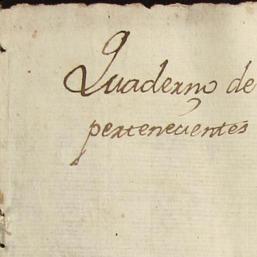 Quaderno de
pertenecientes